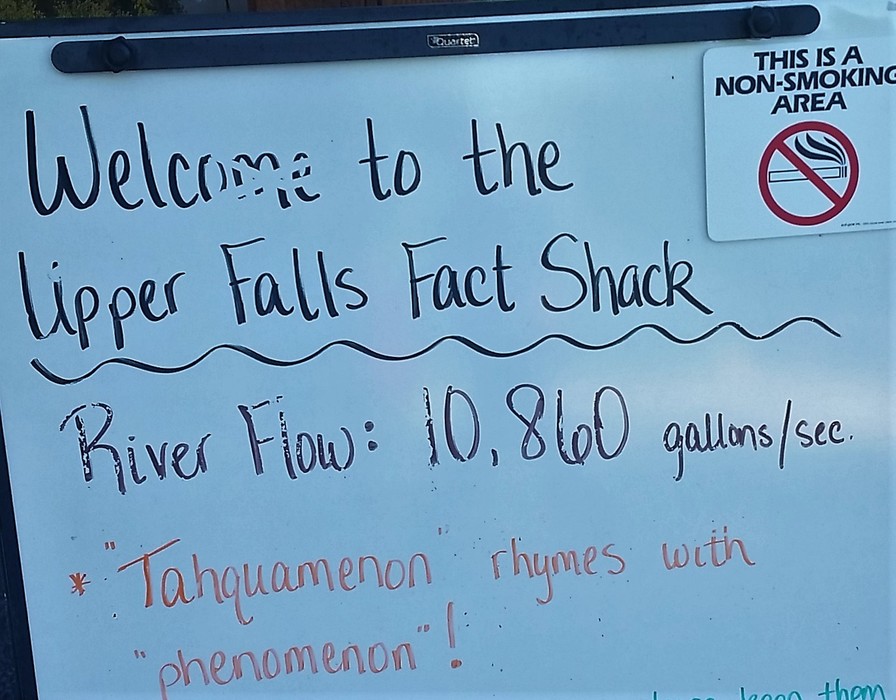 Quartet
THIS IS A
NON-SMOKING
AREA
Welcome to the
Upper Falls Fact Shack
River Flow: 10,860 gallons/sec.
* "Tahquamenon" rhymes with
"phenomenon"!
keep them